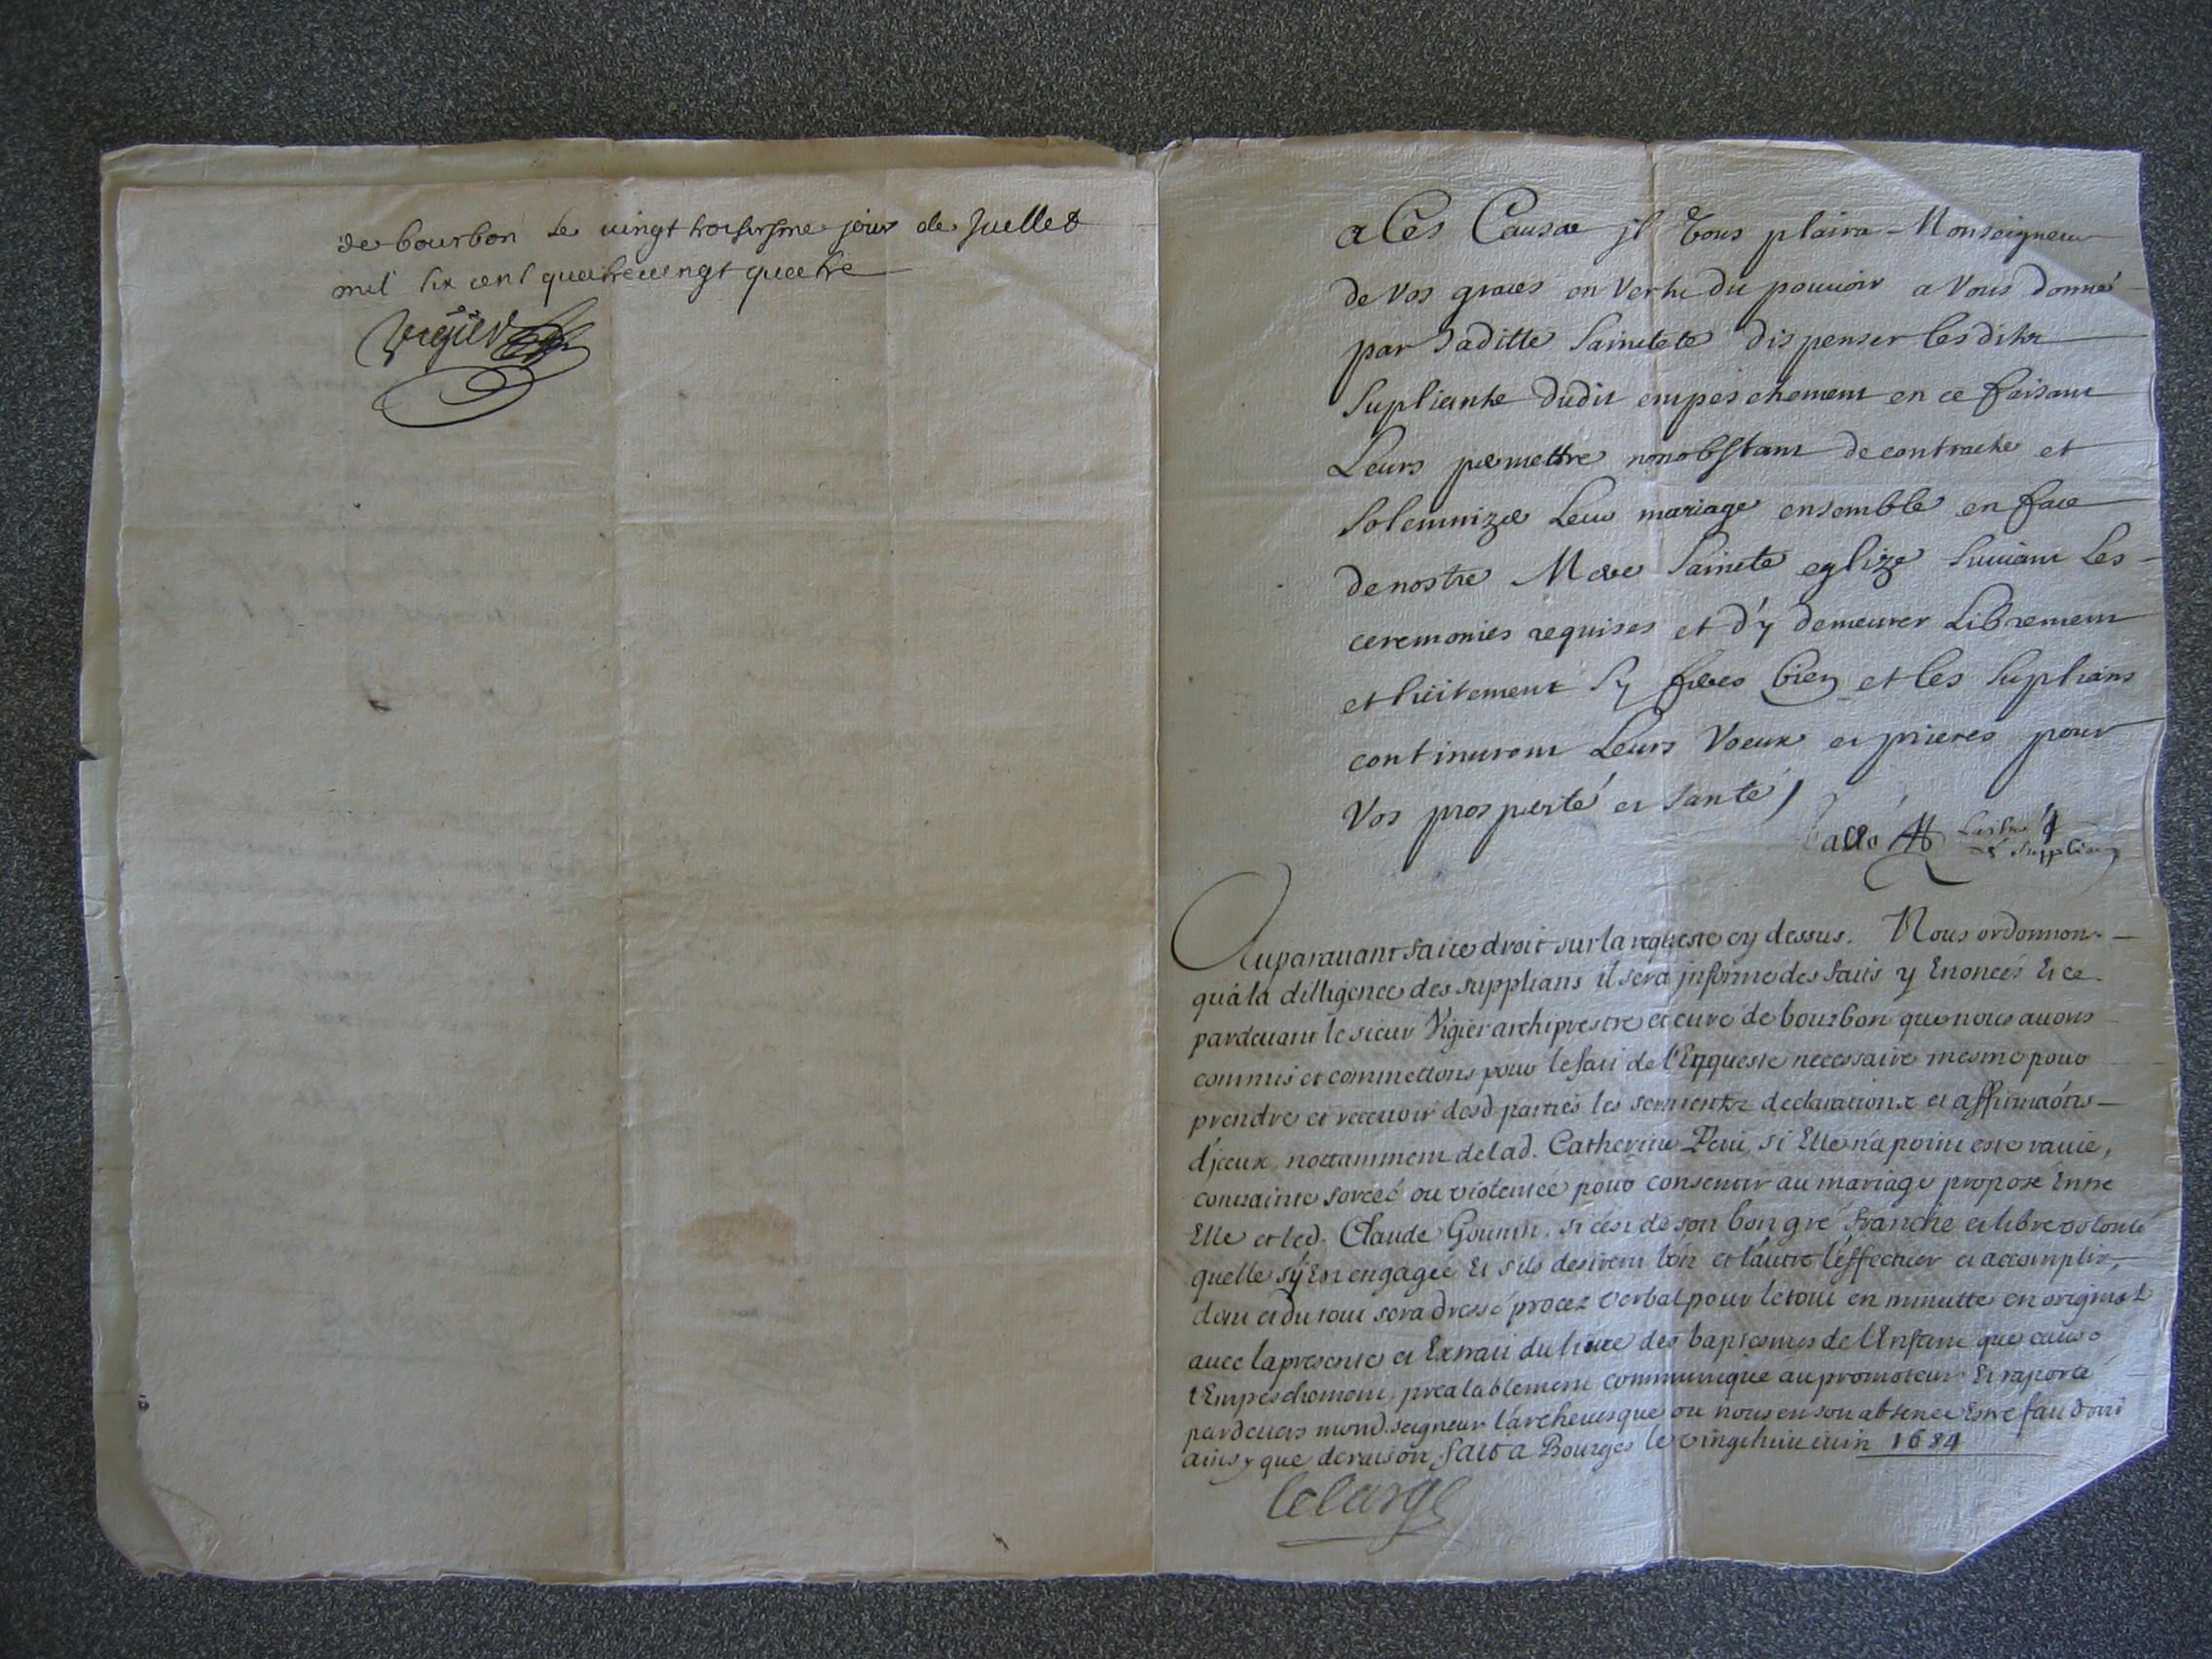 de bourbon le vingt troisiesme jour de Juellet
mil six cent quatrevingt quatre
Vigier
a Ces Causes jl Vous plaira Monseigneur
de Vos graces en Vertu du pouuoir a Vous donné
par Saditte Sainteté dispenser lesdits
Supliants dudit empeschement en ce faisant
Leurs permettre nonobstant de contracter et
Solemnizer Leur mariage ensemble en face
de nostre Mere Sainte eglize Suiuant Les
ceremonies requises et d'y demeurer Librement
et licitement Sy ferez bien et les Suplians
continuront Leurs Voeux et prieres pour
Vos prosperité et santé
Supplian
Auparauant faire droit sur la requeste cy dessus. Nous ordonnons
qu'a la dilligence des supplians il sera jnformé des faits y Enoncés Et ce
pardeuant le sieur Vigier archiprestre et curé de bourbon que nous auons
commis et commettons pour le fait de l'Enqueste necessaire mesme pour
prendre et receuoir desd. parties les serments declarations et affirmaõns
d'jceux nottamment de lad. Catherine Petit, si Elle n'a point esté rauie,
contrainte forceé ou violenteé pour consentir au mariage proposé Entre
Elle et led. Claude Gounin, si c'est de son bon gré franche et libre volonté
quelle s'y Est engageé Et s'ils desirent l'un et l'autre l'effectuer et accomplir,
dont et du tout sera dressé procez verbal pour le tout en minutte en original
auec la presente et Extrait du liure des baptesmes de l'Enfant que cause
l'Empeschement prealablement communiqué au promoteur Et raporté
pardeuers mond. seigneur l'archeuesque ou nous en son absence Estre fait droit
ainsy que de raison, fait a Bourges le vingthuit iuin 1684
Lelarge